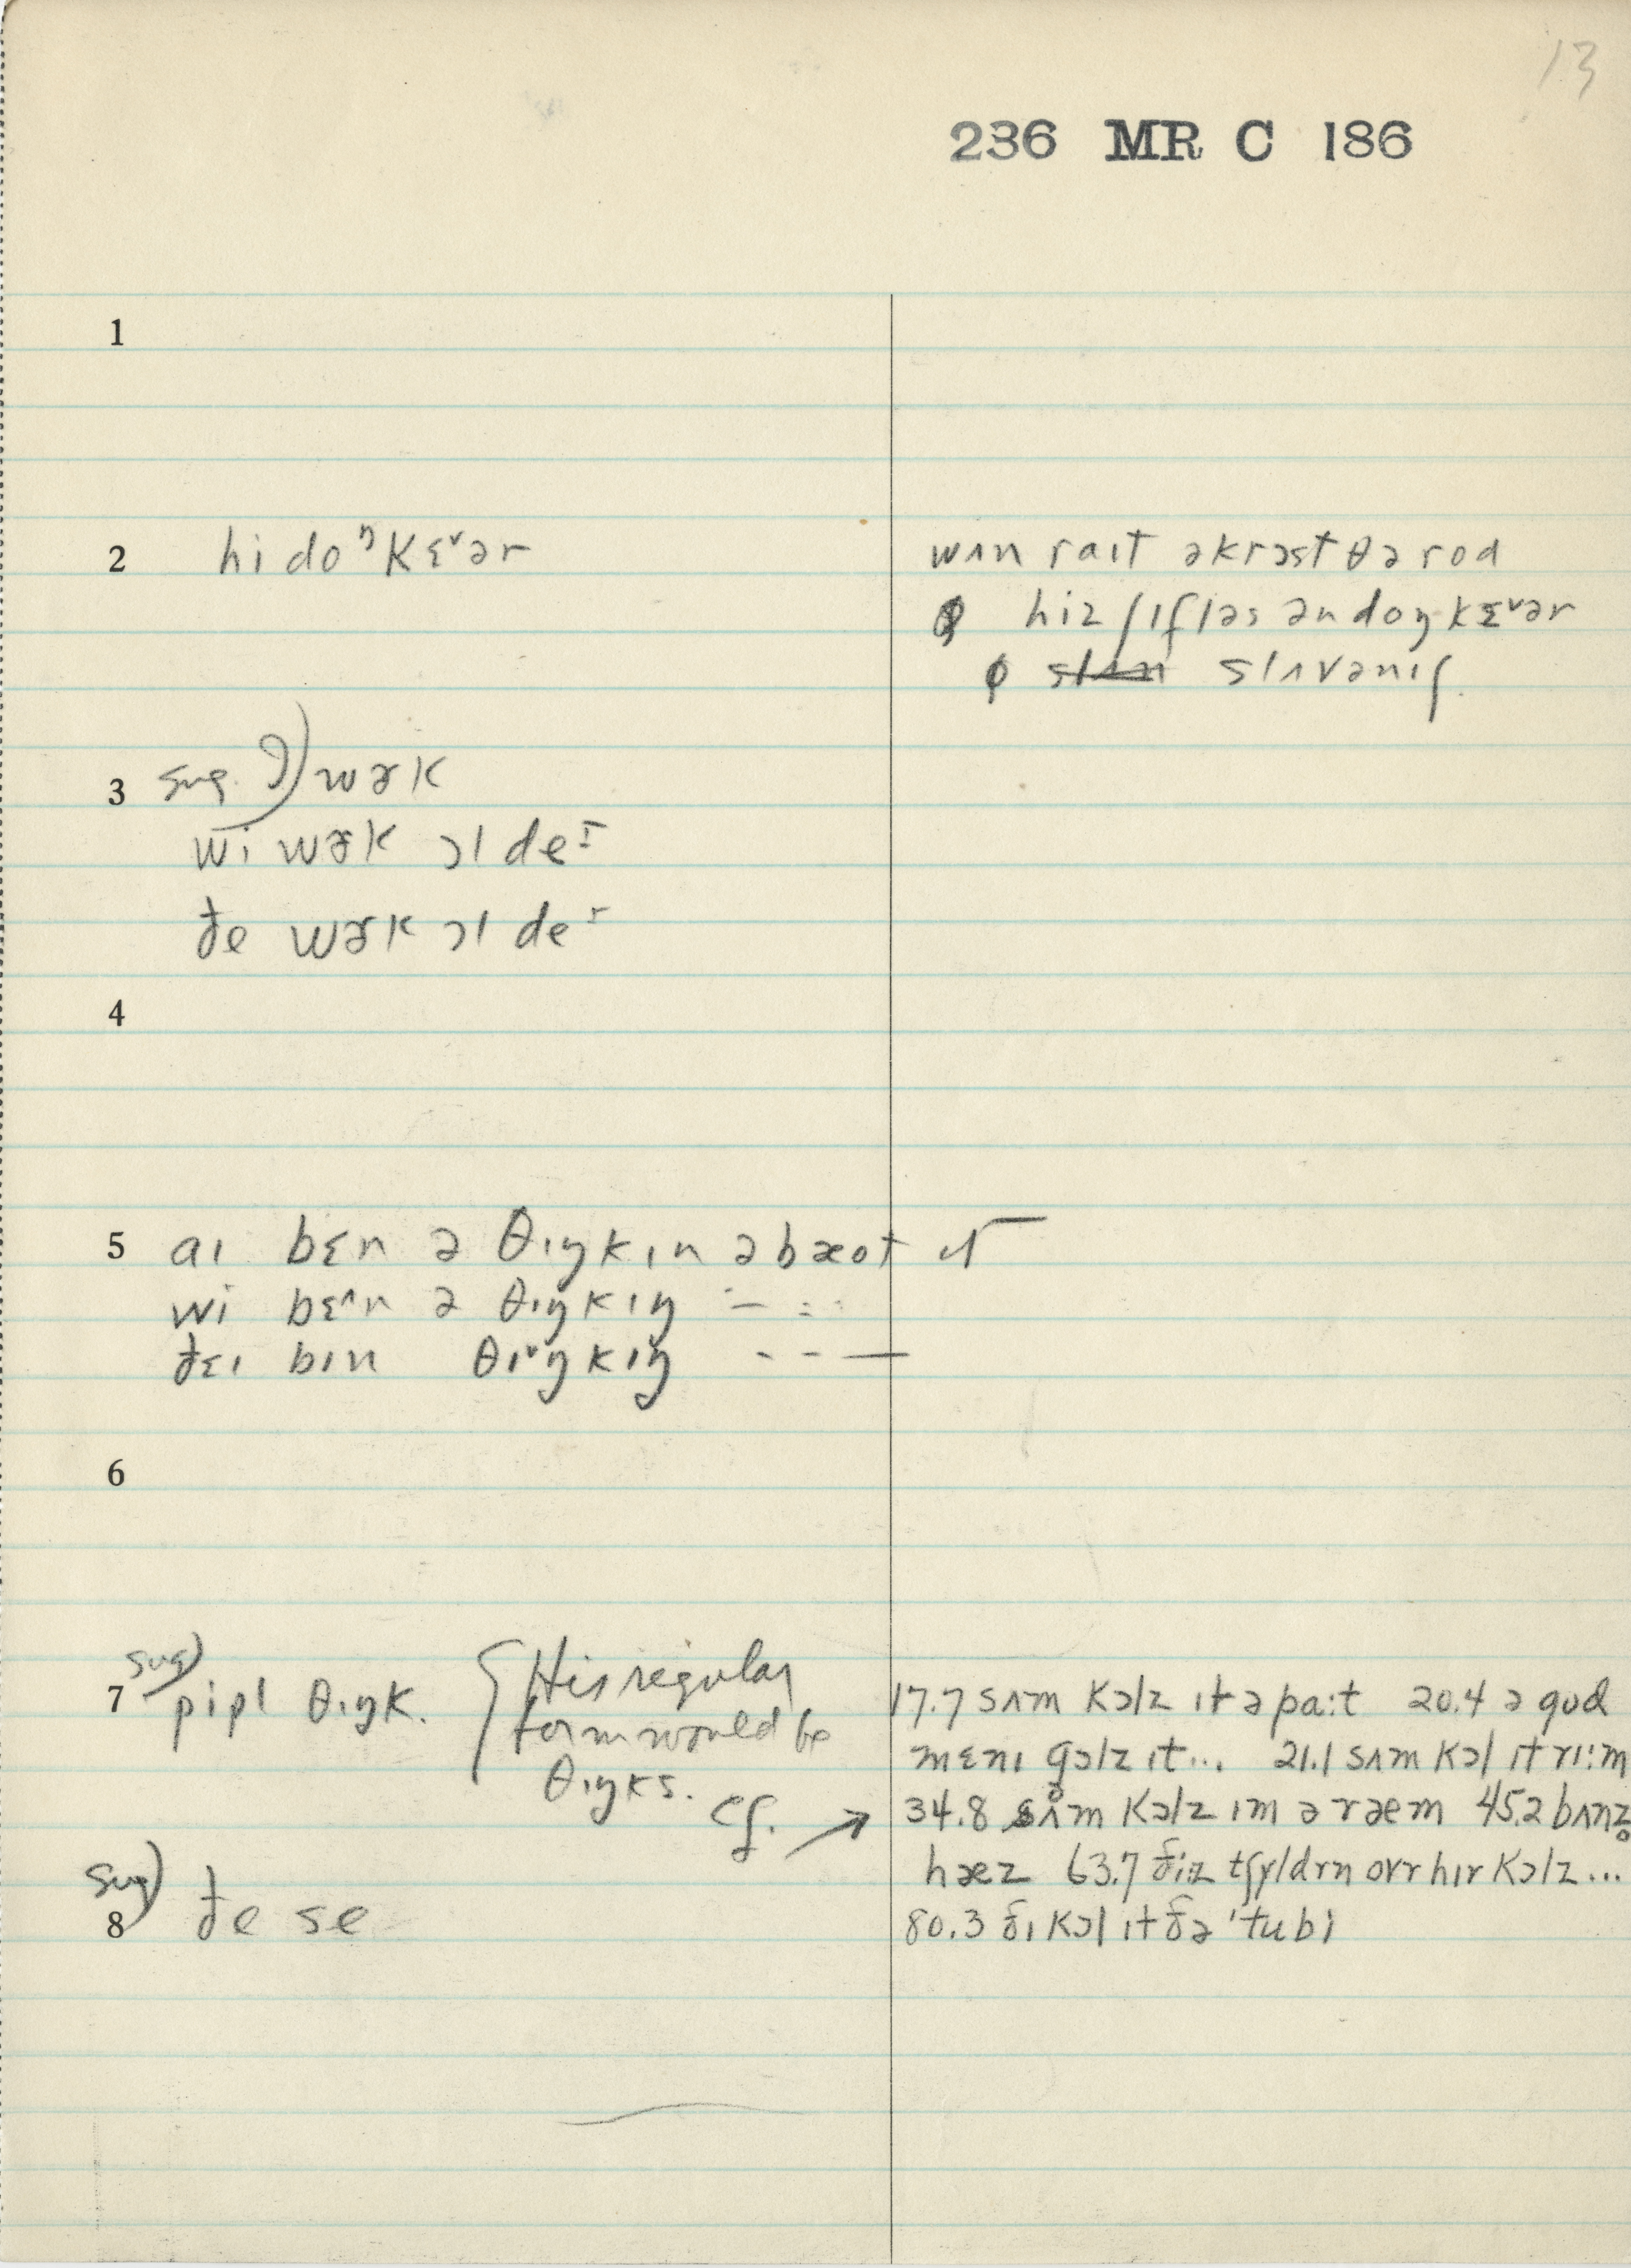 13
236 MR C 186
1
2 hi do ᵑkɛ˅ər
wʌn raɪt əkrɔst θə rod
ϕ hiz ʃɪfləs ən doŋkɛ˅ər
ϕ slʌn slʌvənɪʃ
3 sug. ?) wɚk
wi wɚk ɔl deᴵ
ðe wɚk ɔl deᴵ
4
5 aɪ bɛn ə θɪŋkɪn əbæot ɪt
wi bɛ^n ə θɪŋkɪŋ – – –
ðɛɪ bɪn θɪ˅ŋkɪŋ – – —
6
7 sug) pipl θɪŋk. { His regular
form would be
θɪŋks. cf. →
17.7 sʌm kɔlz ɪt ə paːt 20.4 ə gud
mɛnɪ gɔlz ɪt... 21.1 sʌm kɔl ɪt rɪːm
34.8 sʌm kɔlz ɪm ə ræm 45.2 bʌnz̥
hæz 63.7 ðiz tʃɪldrn ovr hɪr kɔlz...
80.3 ðɪ kɔl ɪt ðə 'tubi
8 sug) ðe se